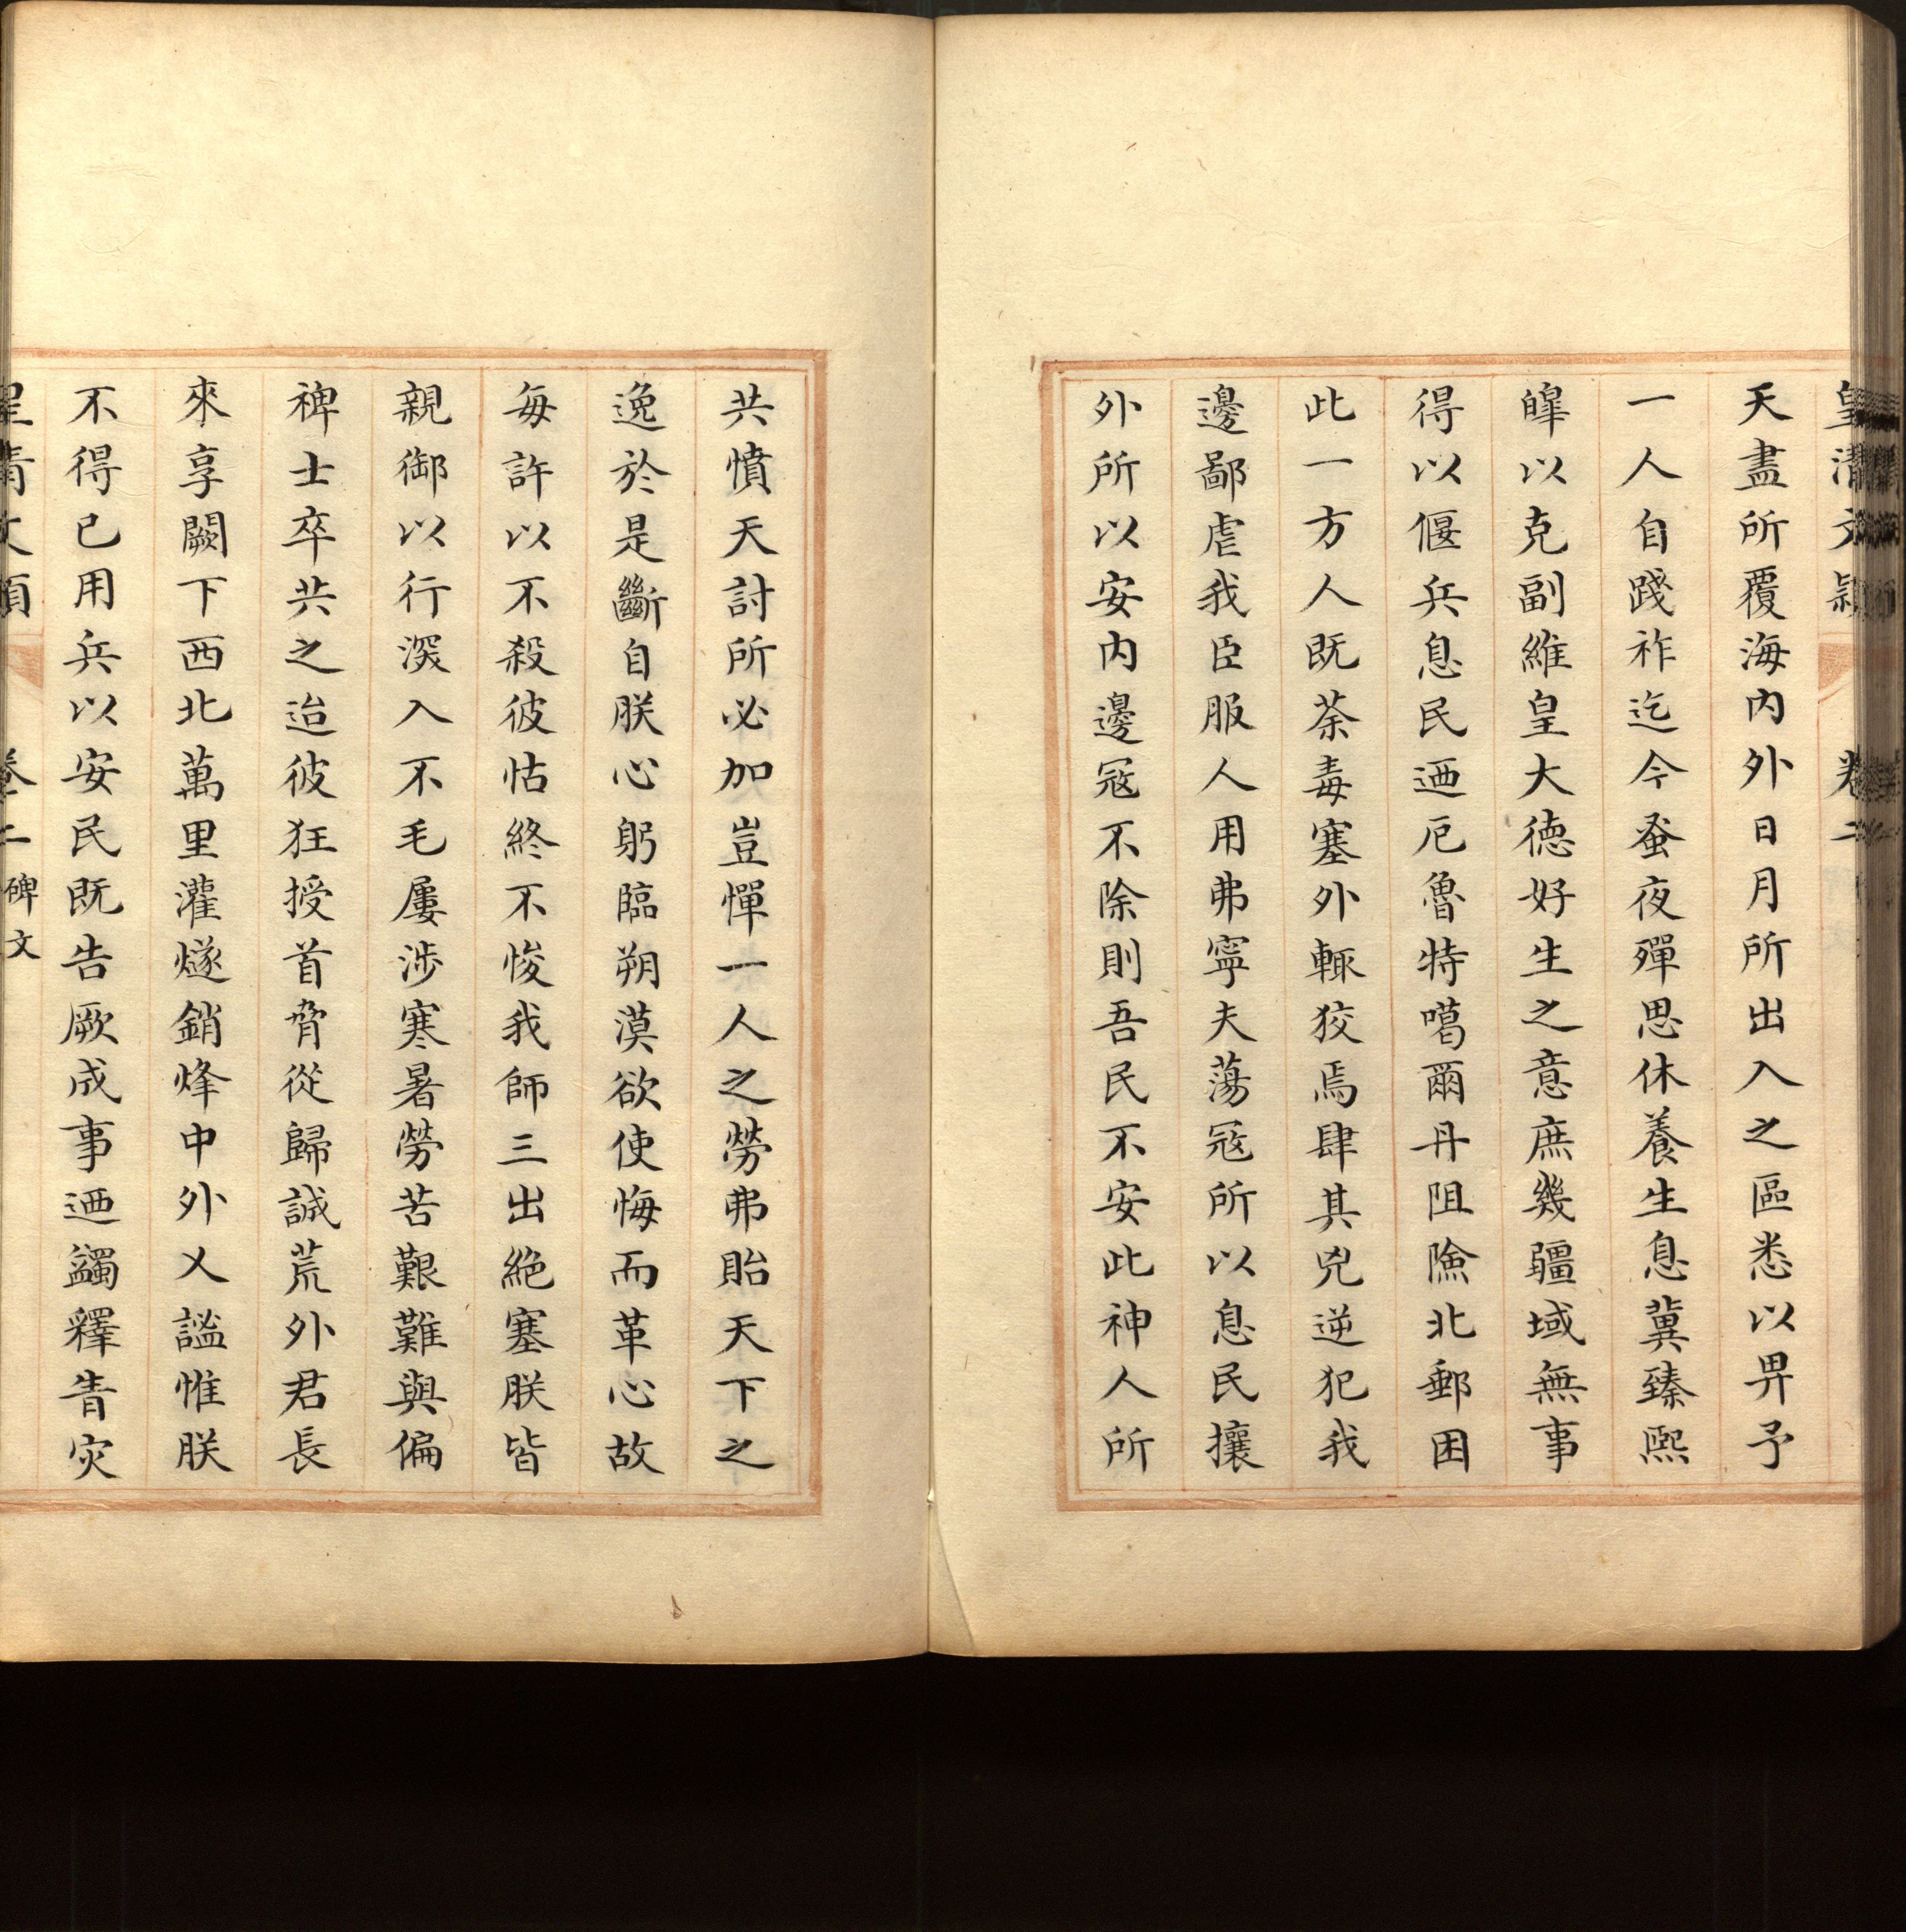 皇清文穎 卷二
天盡所覆海内外日月所出入之區悉以畀予
一人自踐祚迄今蚤夜殫思休養生息冀臻熙
皥以克副維皇大德好生之意庶幾疆域無事
得以偃兵息民迺厄魯特噶爾丹阻險北郵困
此一方人既荼毒塞外輒狡焉肆其兇逆犯我
邊鄙虐我臣服人用弗寧夫蕩冦所以息民攘
外所以安内邊冦不除則吾民不安此神人所
共憤天討所必加豈憚一人之勞弗貽天下之
逸於是斷自朕心躬臨朔漠欲使悔而革心故
每許以不殺彼怙終不悛我師三出絶塞朕皆
親御以行深入不毛屢涉寒暑勞苦艱難與偏
裨士卒共之迨彼狂授首脅從歸誠荒外君長
來享闕下西北萬里灌燧銷烽中外乂謐惟朕
不得已用兵以安民既告厥成事迺蠲釋眚灾
皇清文穎 卷二碑文